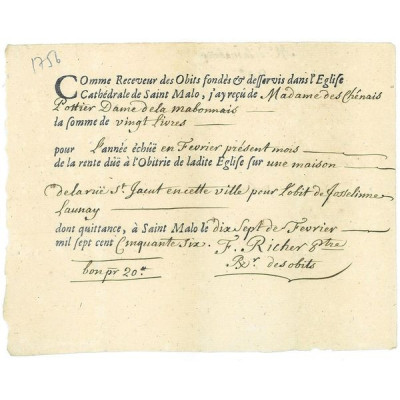 1756
Comme Receveur des Obits fondés & desservis dans l'Eglise
Cathédrale de Saint Malo, j'ay reçu de Madame des Chênais
Pottier Dame de la mabonnais
la somme de vingt Livres
pour L'année échüe en Fevrier présent mois
de la rente dûë à l'Obitrie de ladite Église sur une maison
de la ruë St. Jacut en cette ville pour L'obit de Josselinne
Launay
dont quittance, à Saint Malo le dix Sept de Fevrier
mil sept cent Cinquante Six. F. Richer ptre
bon pr 20 tt Rr. des obits